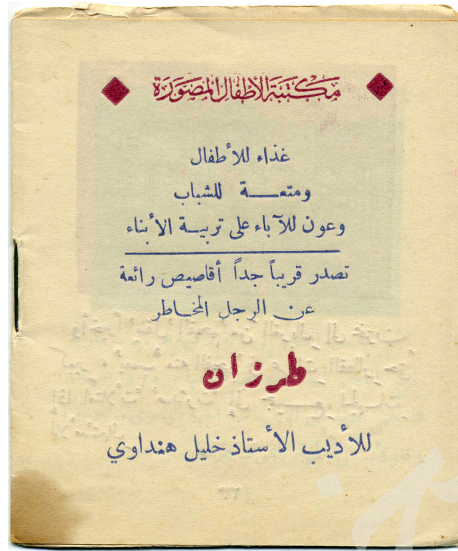 مكتبة الأطفال المصورة
غذاء للأطفال
ومتعة للشباب
وعون للآباء على تربية الأبناء
تصدر قريباً جداً أقاصيص رائعة
عن الرجل المخاطر
طرزان
للأديب الأستاذ خليل هنداوي